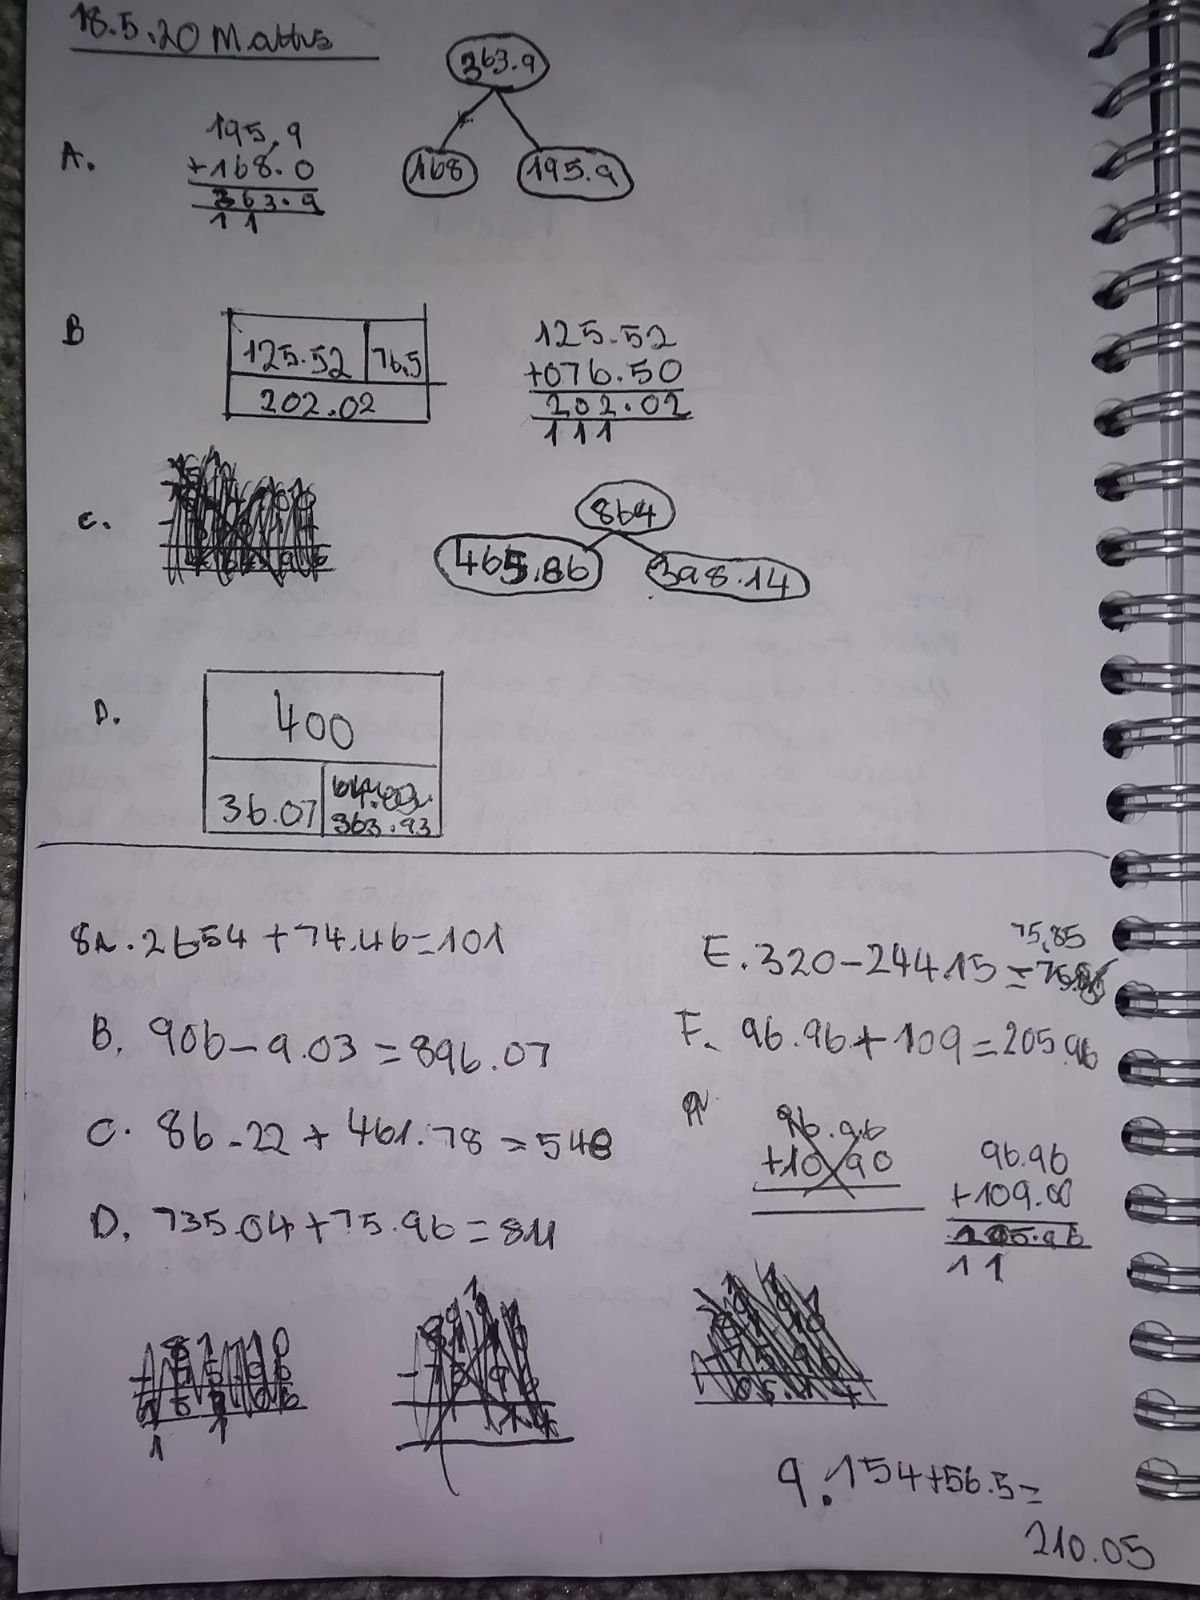 18.5.20 Maths
363.9
168
195.9
A.
195.9
+168.0
363.9
1 1
B
125.52
76.5
202.02
125.52
+076.50
202.02
1 1 1
C.
864
465.86
398.14
D.
400
36.07
363.93
8A. 2654 + 74.46 = 101
B. 906 - 9.03 = 896.07
C. 86 - 22 + 461.78 = 548
D. 735.04 + 75.96 = 811
75.85
E. 320 - 244.15 =
F. 96.96 + 109 = 205.96
96.96
+10 90
96.96
+109.00
205.96
1 1
9. 154 + 56.5 =
210.05